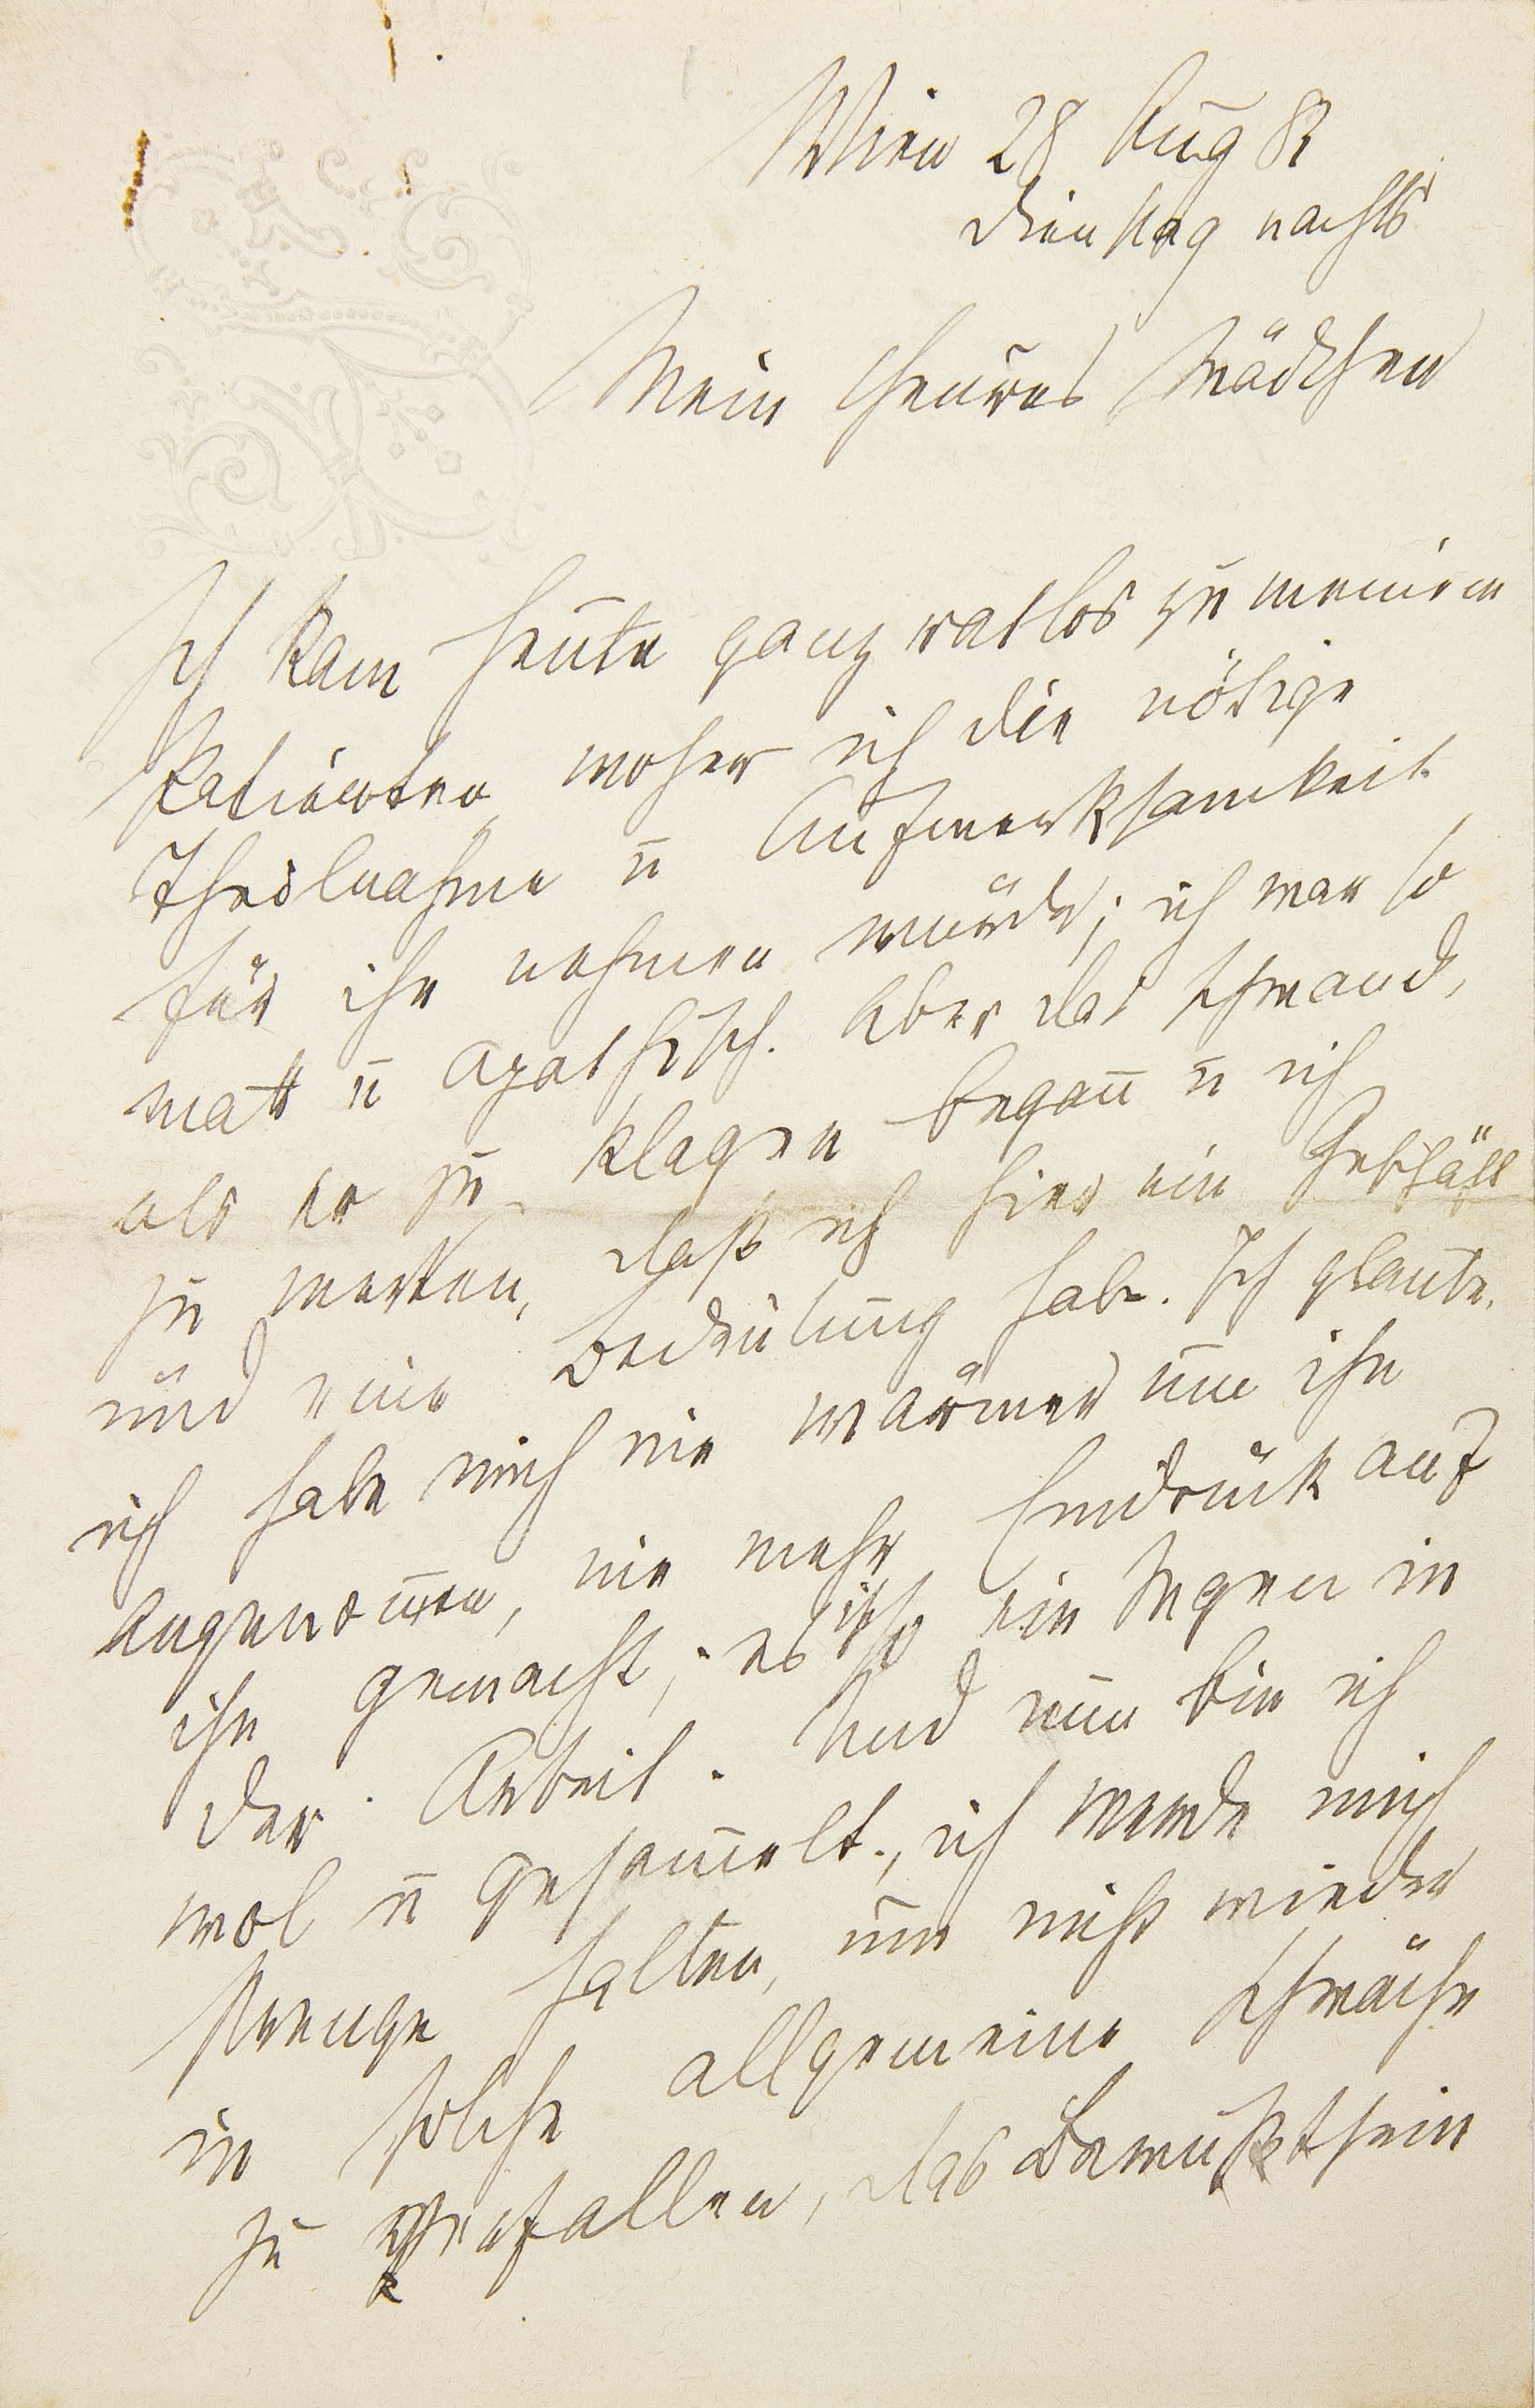 Wien 28 Aug 83
Dienstag nachts
Mein theures Mädchen
Ich kam heute ganz ratlos zu meinem
Patienten, woher ich die nötige
Theilnahme u Aufmerksamkeit
für ihn nehmen würde; ich war so
matt u apathisch. Aber das schwand,
als er zu klagen begañ u ich
zu merken, daß ich hier ein Geschäft
und eine Bedeutung habe. Ich glaube,
ich habe mich nie wärmer um ihn
angenom̄en, nie mehr Eindruck auf
ihn gemacht; es ist ein Segen in
der Arbeit. Und nun bin ich
wol u gesam̄elt, ich werde mich
strenge halten, um nicht wieder
in solche allgemeine Schwäche
zu verfallen, das Bewußtsein